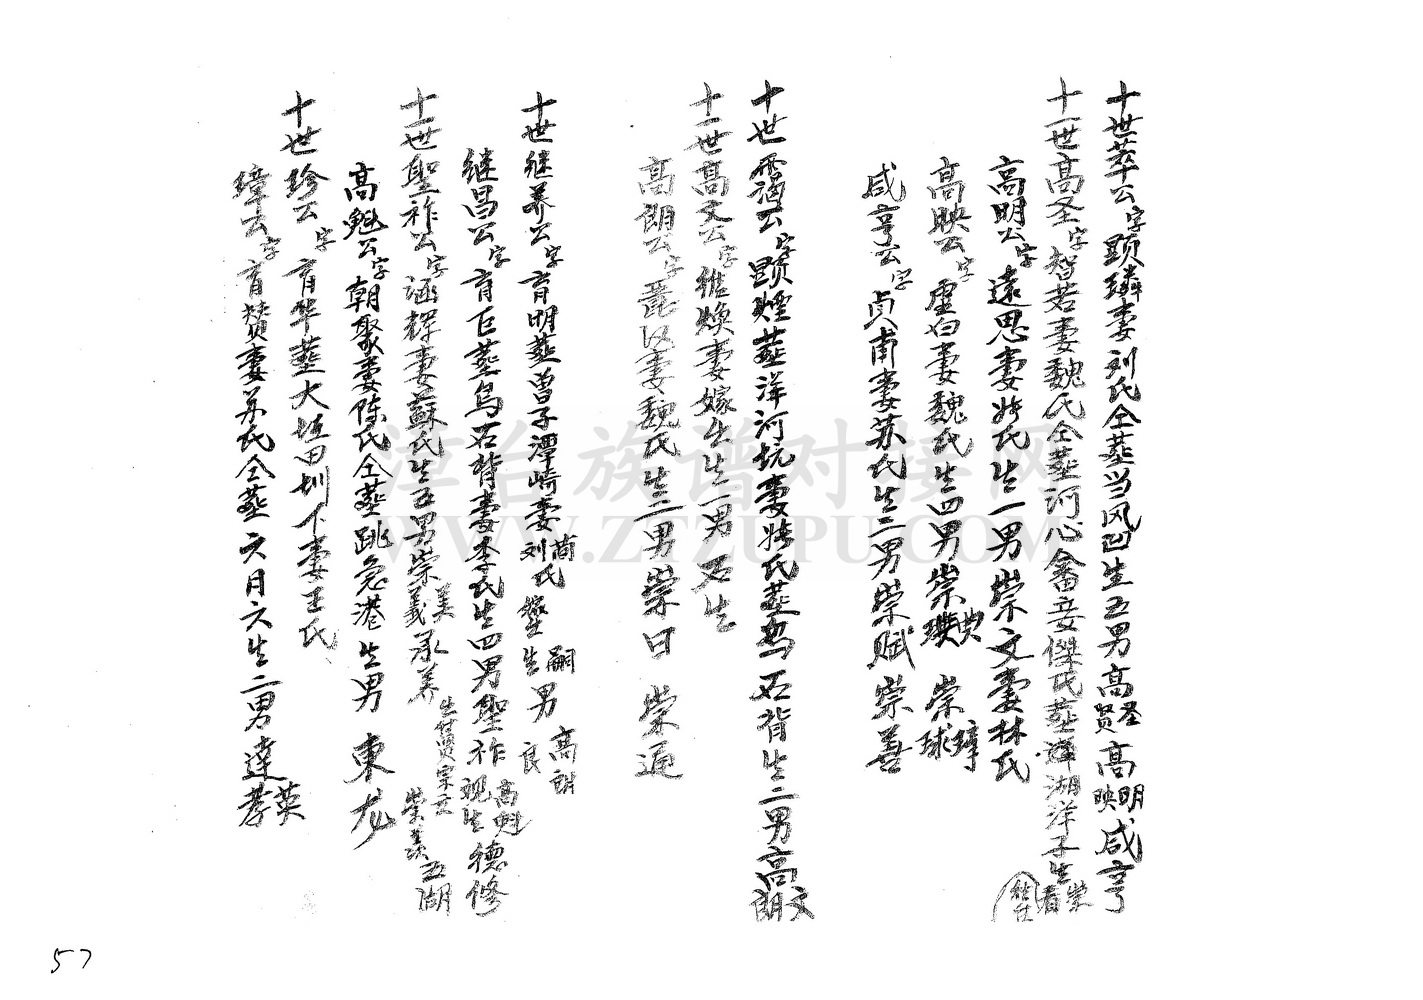 十世萃公字顕璘妻刘氏仝葬当风凹生五男高圣贤高明映咸亨
十一世高圣字智若妻魏氏仝葬河心畲妾傑氏葬湖洋子生荣看
高明公字遠思妻姚氏生一男崇文妻林氏
高映公字虛白妻魏氏生四男崇璞典崇璋球
咸亨公字贞甫妻苏氏生二男崇赋崇善
十世公字顕葬洋河坑妻姚氏葬乌石背生二男高文朗
十一世高文公字继焕妻嫁出生一男石生
高朗公字汉妻魏氏生二男崇日崇通
十世继养公字育明葬曽子潭崎妻简刘氏生嗣男高朗良
继昌公字育巨葬乌石背妻李氏生四男聖祚高魁观生德修
十一世聖祚公字涵辉妻蘇氏生五男崇美義承养崇五湖
高魁公字朝聚妻陈氏仝葬跳急港生男東龙
十世珍公字育华葬大垣田圳下妻王氏
璋公字育赞妻苏氏仝葬六月六生二男達英孝
漳台族谱对接网
WWW.ZTZUPU.COM
57